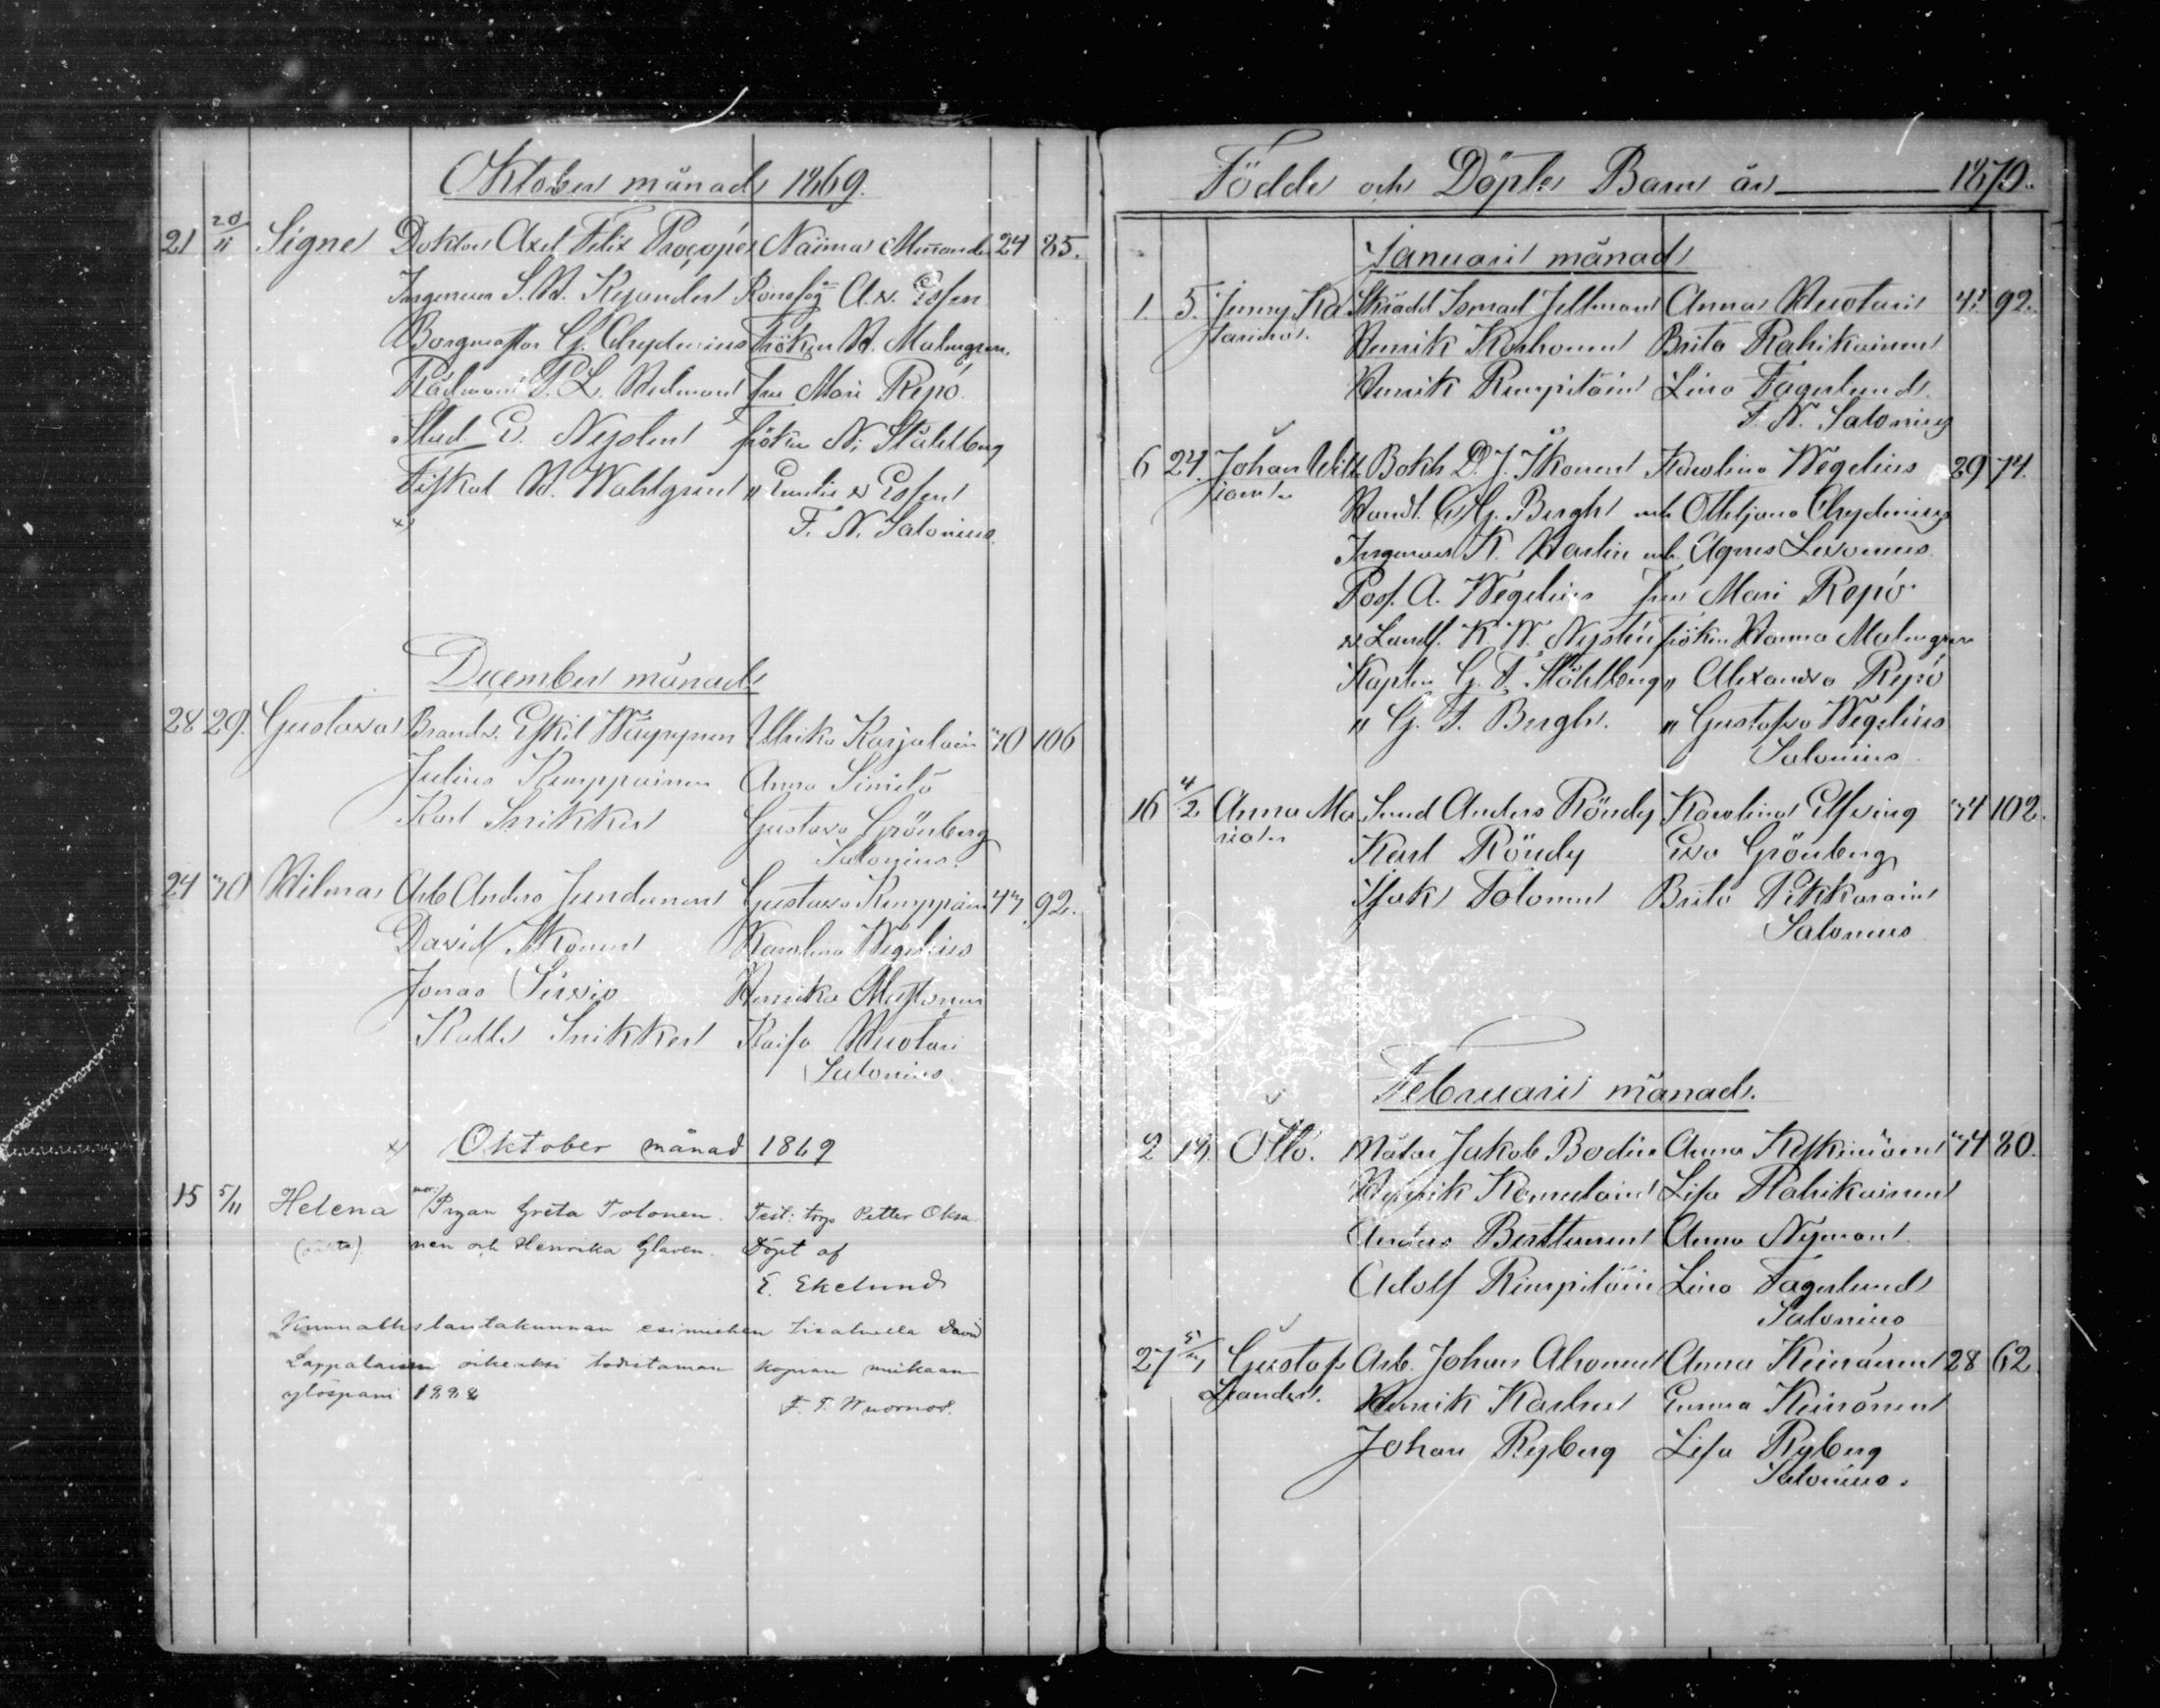 Oktober månad 1869.
21 20/11 Signe Doktor Axel Felix Procopé Naima Munsnde 24 85.
Ingenieur S. W. Kejander A. v. Essen
Borgmästar G. Chydenius Fröken H. Malmgren
Rådman P. L. Hedman fru Mari Repo
Stud. E. Nysten fröken N. Ståhlberg
Fiskal H. Wahlgren " Emilie v Essen
x) F. N. Salonius.
December månad
28 29. Gustava Brandv. Eskil Wäyrynen Ulrika Karjalain 30 106
Julius Kemppainen Anna Similä
Karl Snikker Gustava Grönberg
Salonius.
24 30 Wilma Arb Anders Juntunen Gustava Kemppain 43 92.
David Ikonen Karolina Wegelius
Jonas Sirviö Henrika Mustonen
Kalle Snikker Kaisa Huotari
Salonius.
x) Oktober månad 1869
15 5/11 Helena Pigan Greta Tolonen. Test: torp Petter Oksa
(oäkta) nen och Henrika Glaven. Döpt af
E. Ekelund
Kunnallislautakunnan esimiehen David
Lappalaisen oikeaksi todistaman kopian mukaan
ylöspani 1898 F. T. Wuornos.
Födde och Döpte Barn år 1870.
Januari månad
1. 5. Jenny Ka Skrädd Ismael Jellman Anna Huotari 43 92.
tarina. Henrik Korhonen Brita Rahikainen
Henrik Rimpiläin Lina Fagerlund.
F. N. Salonius
6 24. Johan Will Bokh. D. J. Ikonen Karolina Wegelius 29 74.
iam Handl. C. G. Bergh och Othiljana Chydenius
Ingenieur K. Harlin och Agnes Levonius.
Poss. A. Wegelius fru Mari Repo
v. Lands. K. W. Nystén fröken Hanna Malmgren
Kapten G. F. Ståhlberg " Alexandra Repo
" G. F. Bergh. " Gustafva Wegelius
Salonius.
16 4/2 Anna Ma Smed Anders Röndy Karolina Elfving 34 102.
ria Karl Röndy Eva Grönberg
Isak Tolonen Brita Pikkarain
Salonius
Februari månad.
2 13. Otto. Målar Jakob Bodin Anna Keskimäen 34 80.
Henrik Komulain Lisa Rahikainen
Anders Berttunen Anna Nyman
Adolf Rimpiläin Lina Fagerlund
Salonius
27 5/3 Gustaf Arb. Johan Ahonen Anna Keinänen 28 62.
Leander. Henrik Karhu Emma Keinänen
Johan Ryberg Lisa Ryberg
Salonius.